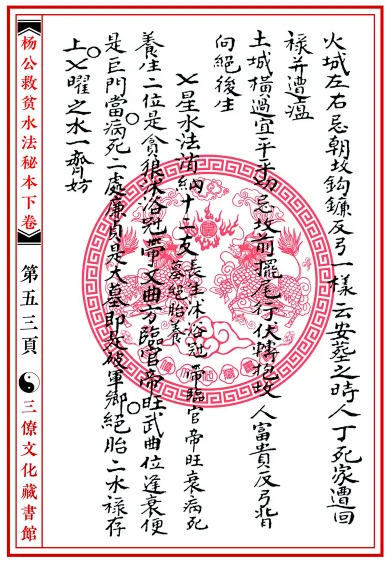 火城左右忌朝坟鈎鐮反弓一樣云安墓之時人丁死家遭回
禄并遭瘟
土城橫過宜平平切忌坟前擺尾行伏轉抱坟人富貴反弓背
向絕後生
七星水法消納十二支 長生沐浴冠帶臨官帝旺衰病死
墓絕胎養
養生二位是貪狼沐浴冠帶文曲方臨官帝旺武曲位逢衰便
是巨門當病死二處廉貞是大墓即在破軍鄉絕胎二水禄存
上七曜之水一齊妨
杨公救貧水法秘本下卷
第五三頁
三僚文化藏書館